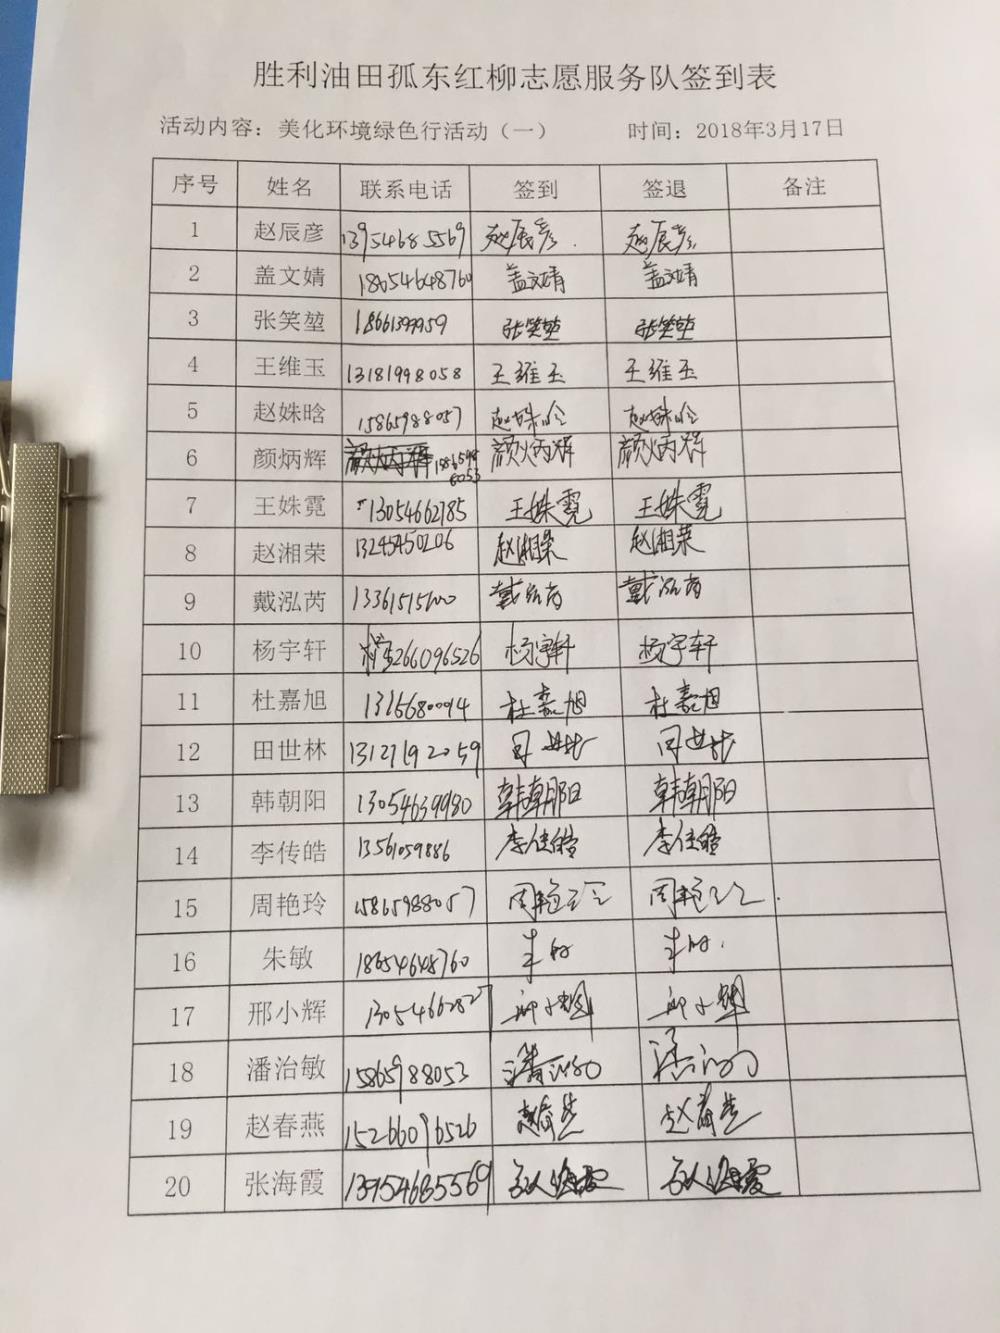 胜利油田孤东红柳志愿服务队签到表
活动内容：美化环境绿色行活动（一） 时间：2018年3月17日
序号 姓名 联系电话 签到 签退 备注
1 赵辰彦 13954685569 赵辰彦 赵辰彦
2 盖文婧 18654648760 盖文婧 盖文婧
3 张笑堃 张笑堃 张笑堃
4 王维玉 13181998058 王维玉 王维玉
5 赵姝晗 15865988057 赵姝晗 赵姝晗
6 颜炳辉 颜炳辉 颜炳辉
7 王姝霓 13054662785 王姝霓 王姝霓
8 赵湘荣 13245450206 赵湘荣 赵湘荣
9 戴泓芮 戴泓芮 戴泓芮
10 杨宇轩 15266096526 杨宇轩 杨宇轩
11 杜嘉旭 杜嘉旭 杜嘉旭
12 田世林 13127192059 田世林 田世林
13 韩朝阳 13054639980 韩朝阳 韩朝阳
14 李传皓 13561059886 李传皓 李传皓
15 周艳玲 15865988057 周艳玲 周艳玲
16 朱敏 18654648760 朱敏 朱敏
17 邢小辉 13054662827 邢小辉 邢小辉
18 潘治敏 15865988053 潘治敏 潘治敏
19 赵春燕 15266096526 赵春燕 赵春燕
20 张海霞 13954685569 张海霞 张海霞